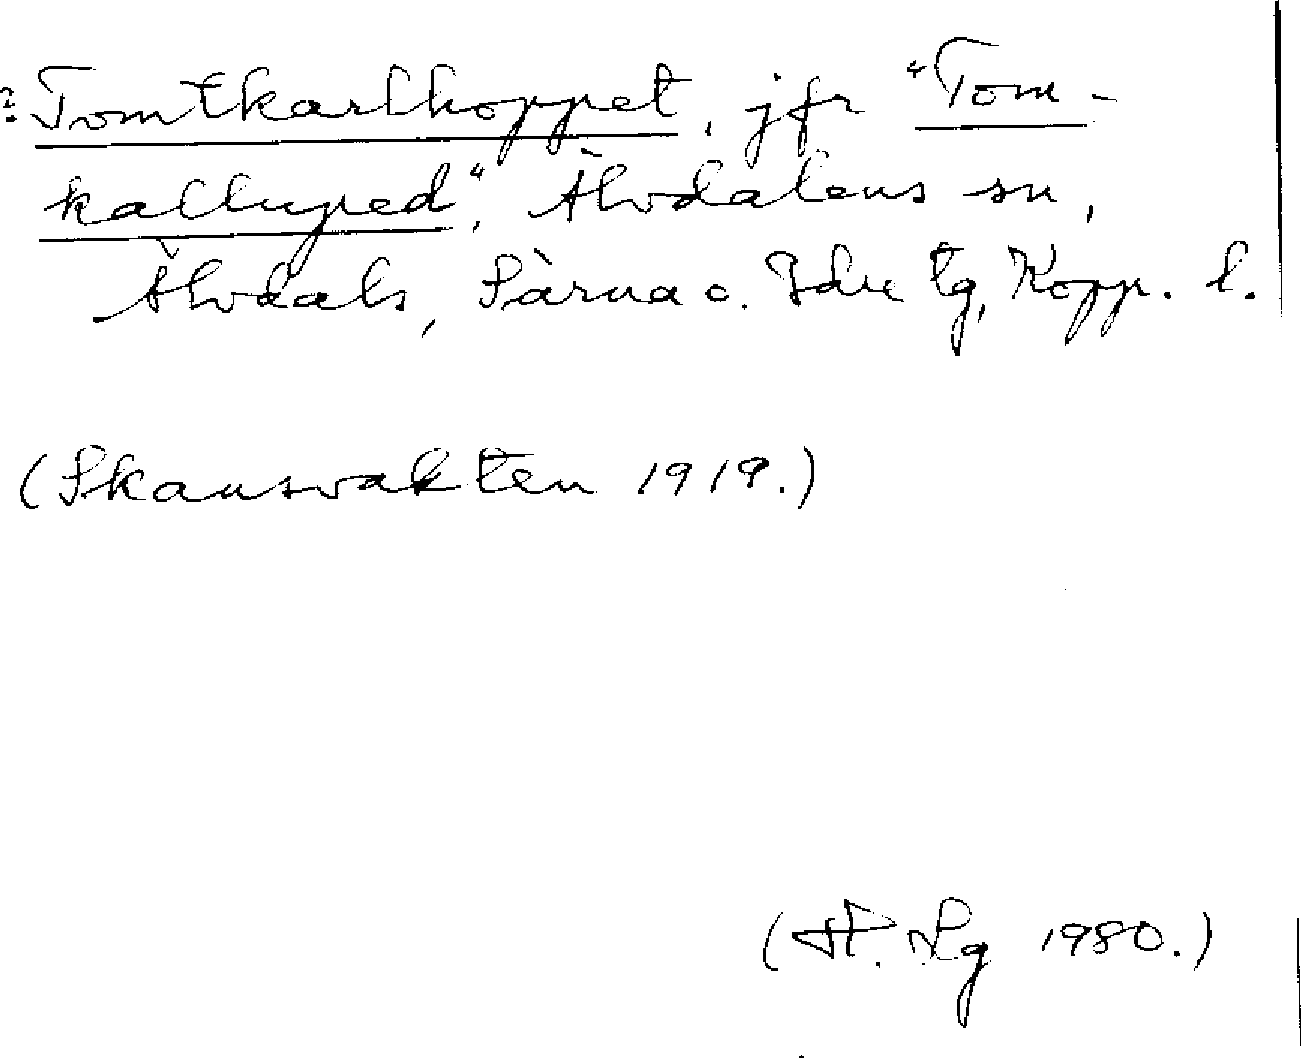 ? Tomtkarlhoppet, jfr "Tom-
kalluped", Älvdalens sn,
Älvdals, Särna o. Idre tg, Kopp. l.
(Skansvakten 1919.)
(H. Lg 1980.)